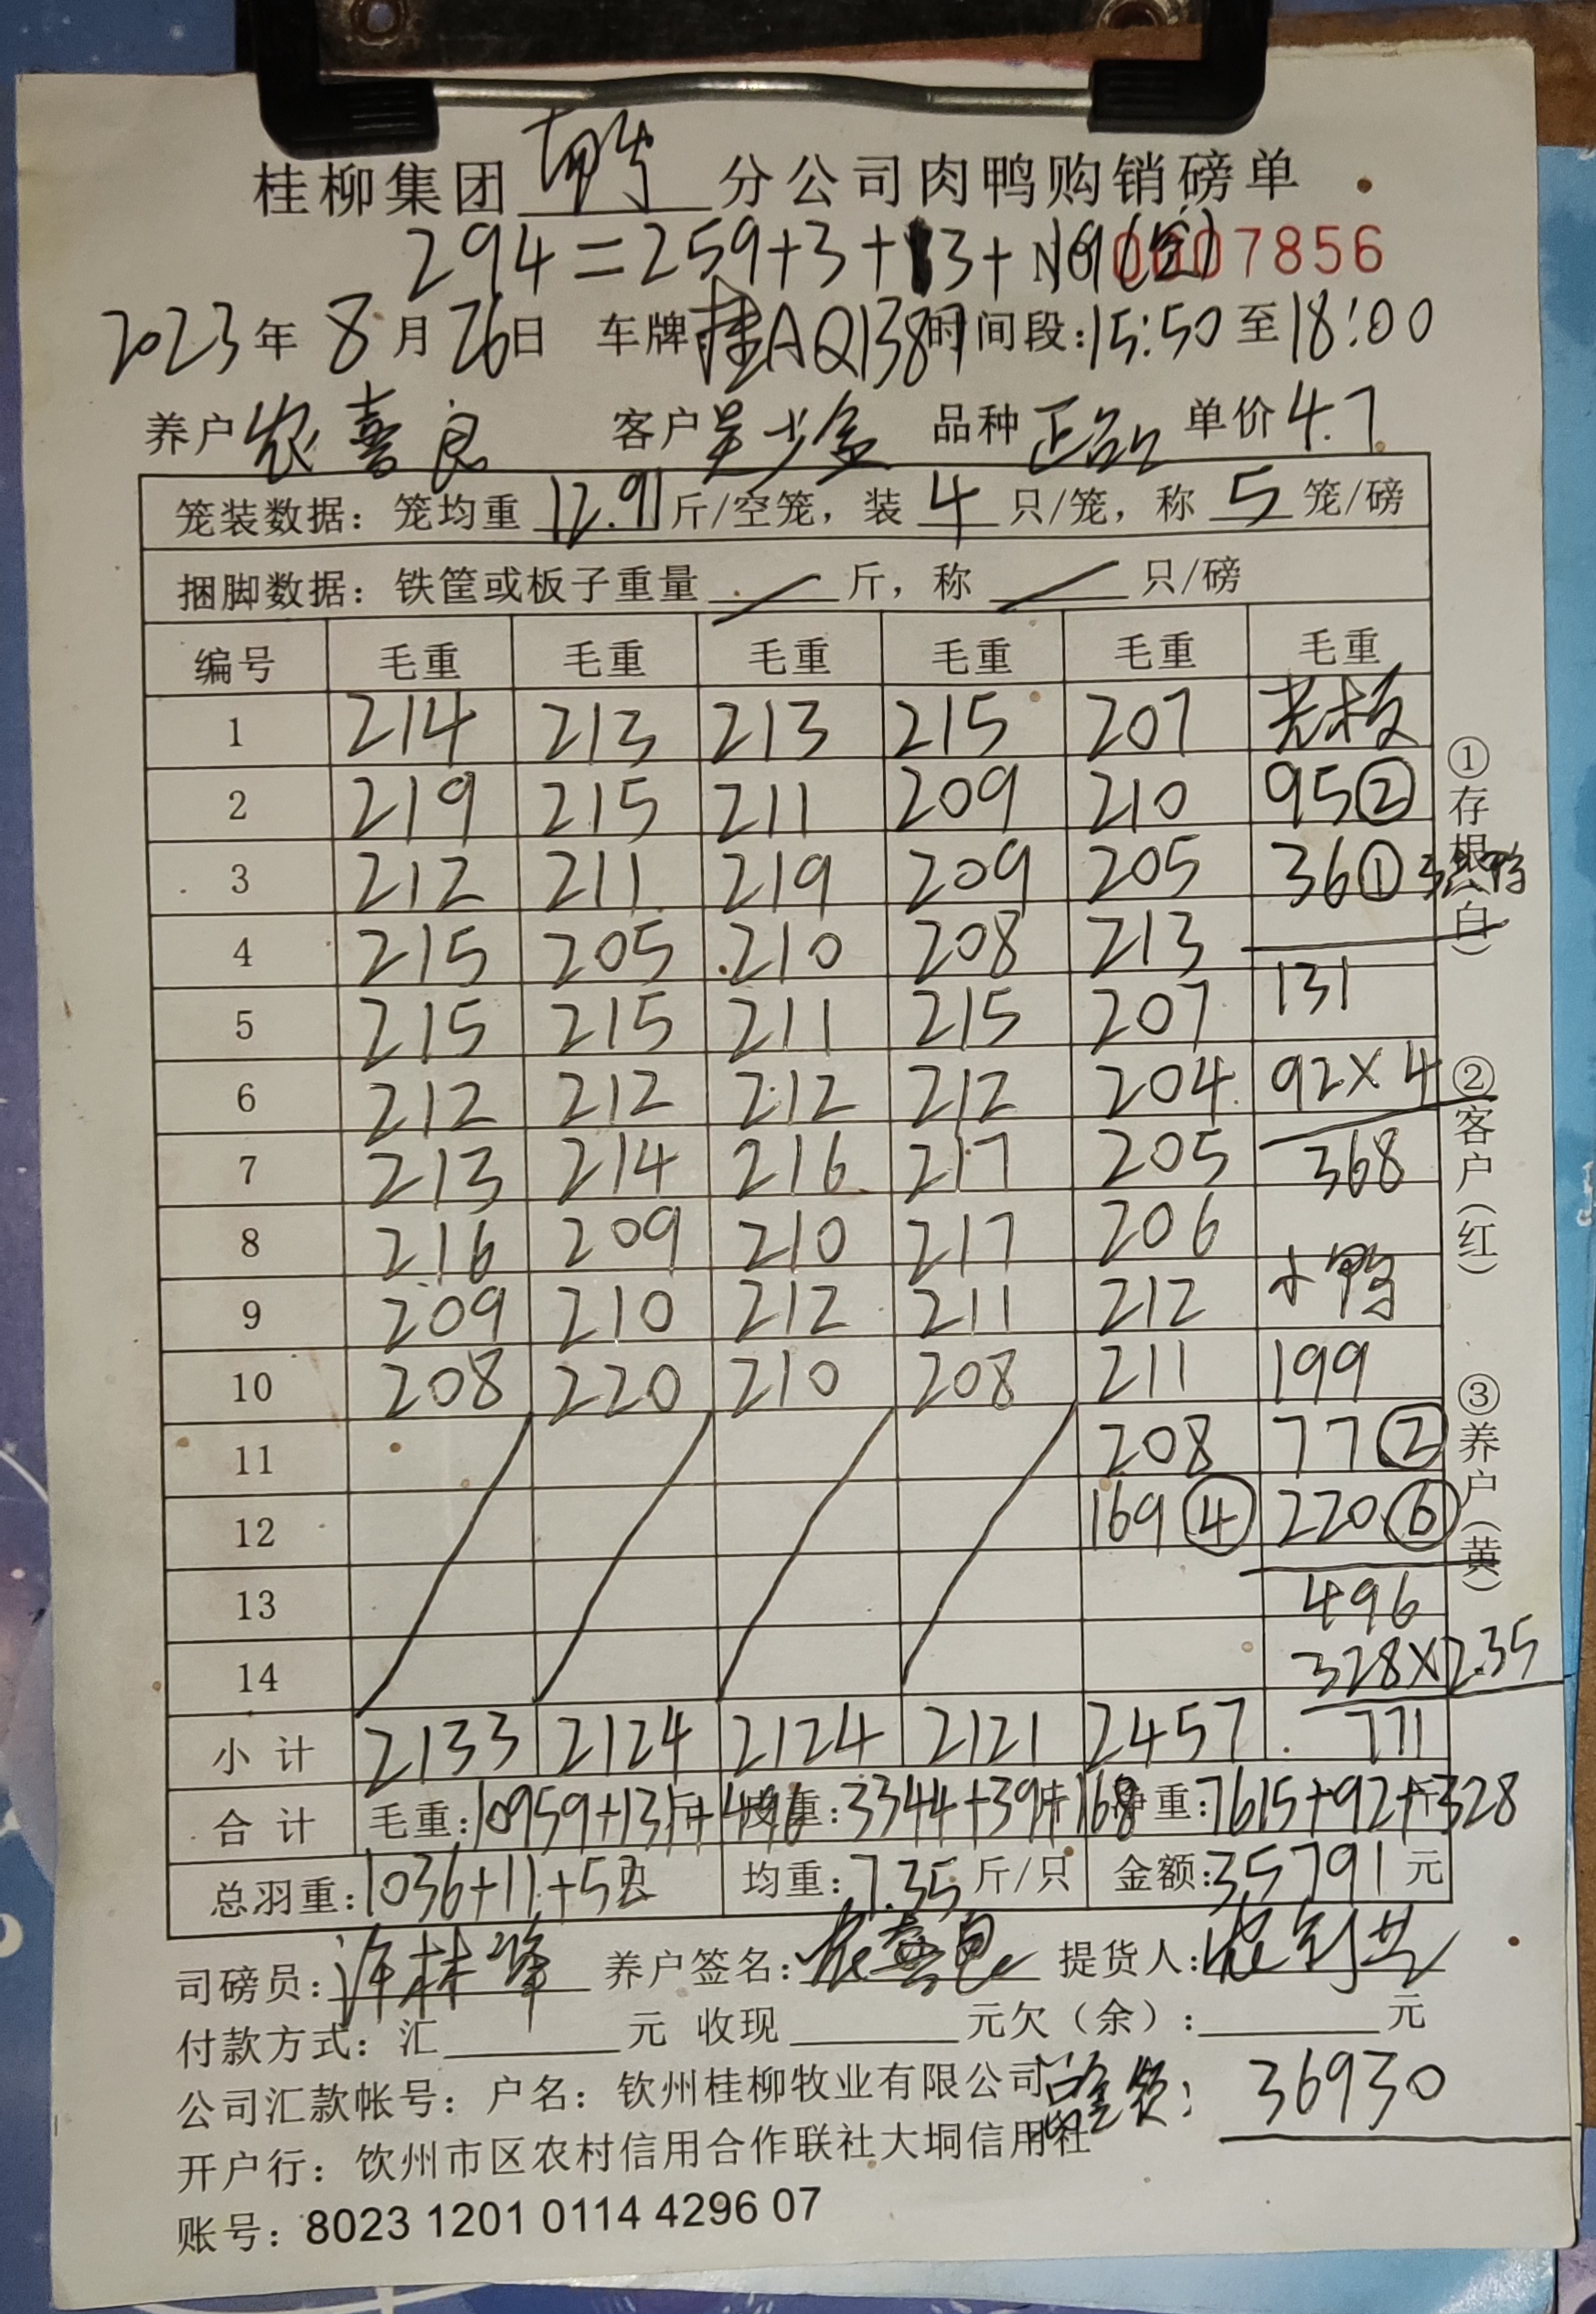 桂柳集团 分公司肉鸭购销磅单
294=259+3+13+19(空) NO 0007856
2023年 8月 26日 车牌桂AQ1387 时间段:15:50至18:00
养户 农喜良 客户 吴少金 品种 正品 单价 4.7
笼装数据：笼均重 12.91 斤/空笼，装 4 只/笼，称 5 笼/磅
捆脚数据：铁筐或板子重量 / 斤，称 / 只/磅
编号 毛重 毛重 毛重 毛重 毛重 毛重
1 214 213 213 215 207
2 219 215 211 209 210 95②
3 212 211 219 209 205 36① 3只鸭
4 215 205 210 208 213
5 215 215 211 215 207 131
6 212 212 212 212 204 92×4
7 213 214 216 217 205 368
8 216 209 210 217 206
9 209 210 212 211 212 小鸭
10 208 220 210 208 211 199
11 208 77②
12 169④ 220⑥
13 496
14 328×2.35
小计 2133 2124 2124 2121 2457 771
合计 毛重:10959+131+496 皮重:3344+39+168 净重:7615+92+328
总羽重:1036+11+52 均重:7.35斤/只 金额:35791元
司磅员: 许桂峰 养户签名: 农喜良 提货人:
付款方式：汇 元 收现 元欠（余）: 元
公司汇款帐号：户名：钦州桂柳牧业有限公司 总金额: 36930
开户行：钦州市区农村信用合作联社大垌信用社
账号：8023 1201 0114 4296 07
①存根（白）
②客户（红）
③养户（黄）